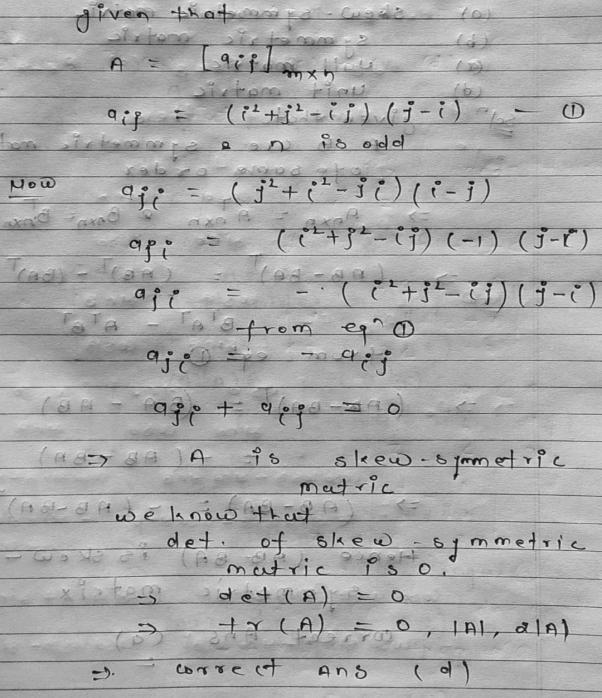 given that
A = [aij] m×n
aij = (i²+j²-ij) (j-i) - ①
& n is odd
Now aji = (j²+i²-ji) (i-j)
aji = (i²+j²-ij) (-1) (j-i)
aji = - (i²+j²-ij) (j-i)
from eqⁿ ①
aji = - aij
aji + aij = 0
⇒ A is skew-symmetric
matric
we know that
det. of skew-symmetric
matric is 0.
⇒ det(A) = 0
⇒ tr(A) = 0, |A|, 2|A)
⇒. correct Ans (d)